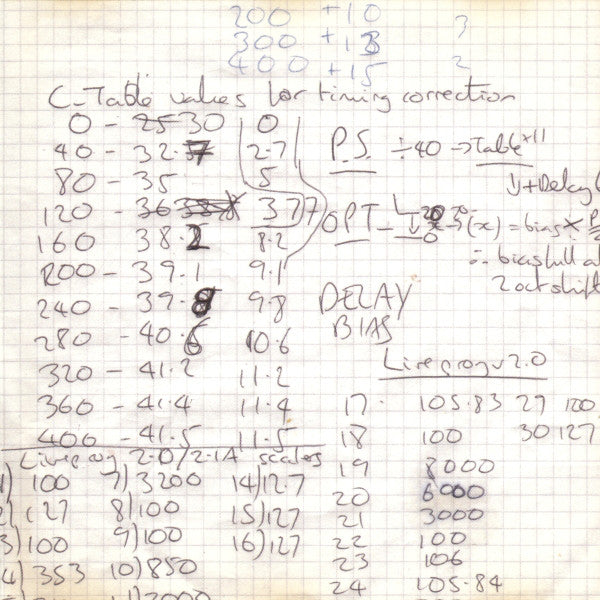 200 +10
300 +13 3
400 +15 2
C-Table values for timing correction
0 - 25 30 0
40 - 32.7 2.7 P.S. ÷40 → Table x11
80 - 35 5 ↓) + Delay
120 - 37 7 OPT - (x) = bias x
160 38.2 8.2 ∴ bias full
200 - 39.1 9.1 2 oct shift
240 - 39.8 9.8 DELAY
280 - 40.6 10.6 BIAS
320 - 41.2 11.2 Liveprog v2.0
360 - 41.4 11.4 17. 105.83 27 100
400 - 41.5 11.5 18 100 30 127
Liveprog 2.0/2.1A scales 19 8000
1) 100 7) 3200 14) 12.7 20 6000
2) 127 8) 100 15) 127 21 3000
3) 100 9) 100 16) 127 22 100
4) 353 10) 850 23 106
11) 2000 24 105.84